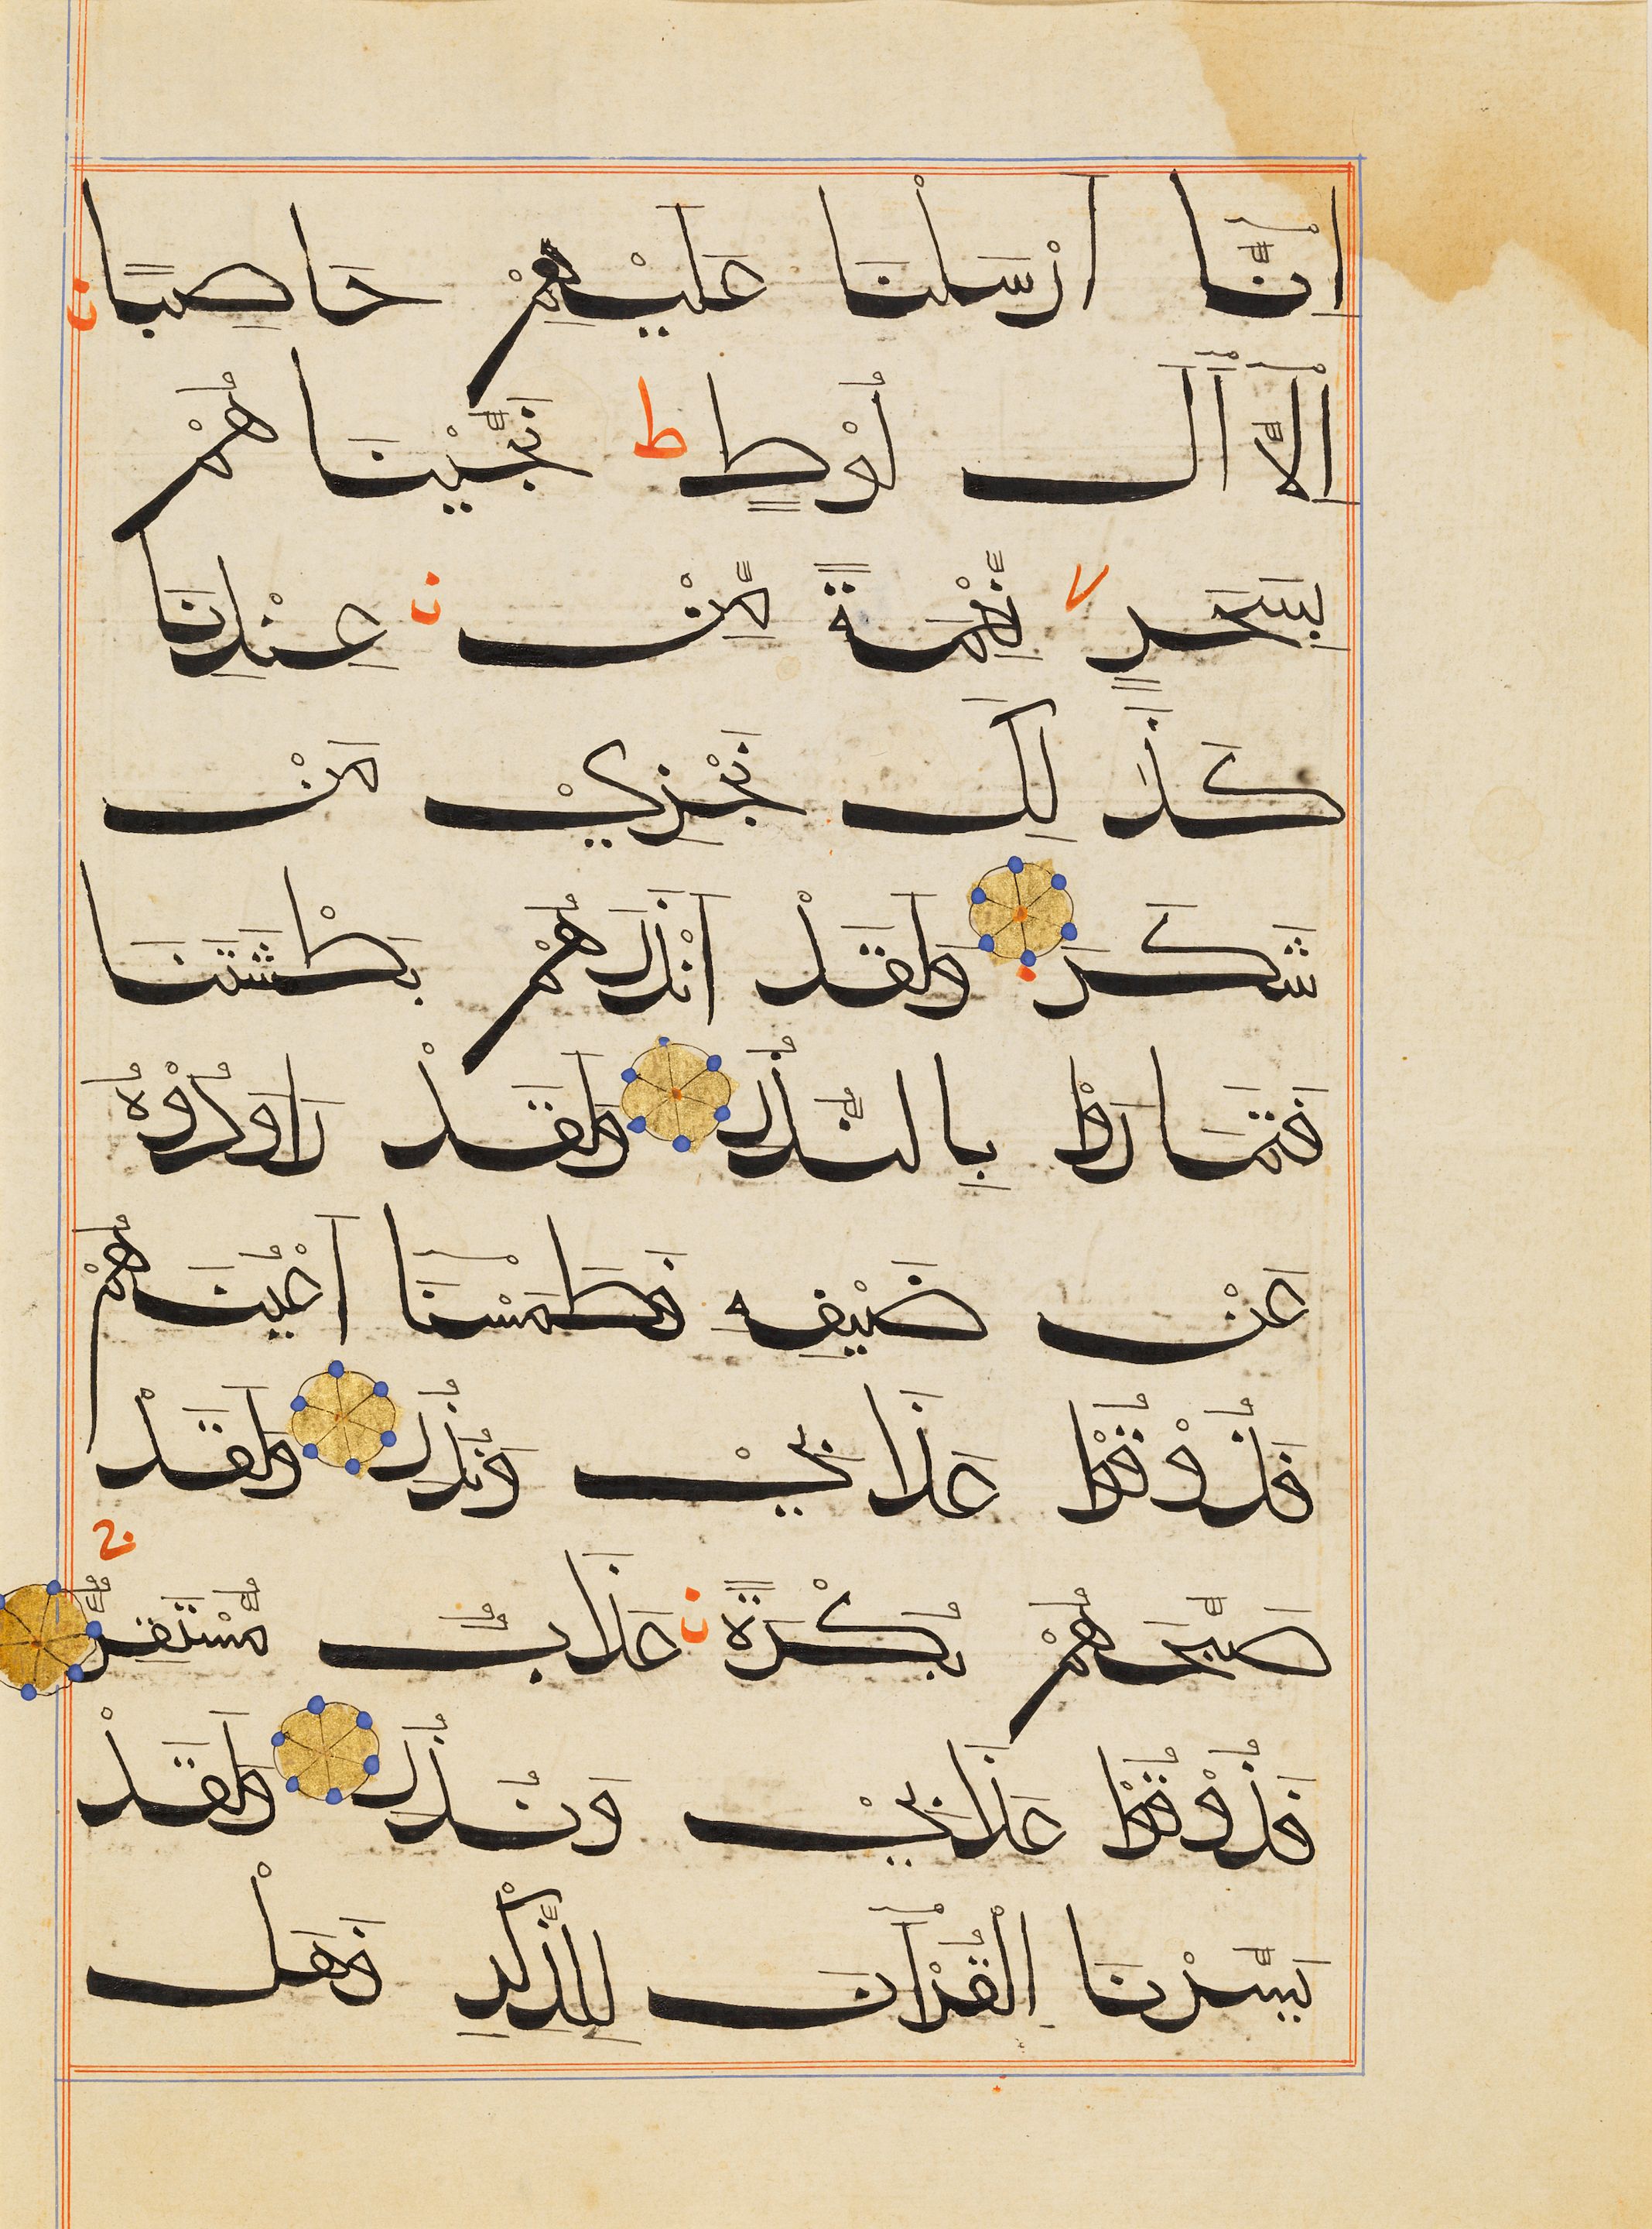 اِنَّآ اَرْسَلْنَا عَلَيْهِمْ حَاصِبًا
اِلَّآ اٰلَ لُوْطٍ ط نَجَّيْنَاهُمْ
بِسَحَرٍ نِّعْمَةً مِّنْ عِنْدِنَا
كَذَلِكَ نَجْزِيْ مَنْ
شَكَرَ وَلَقَدْ اَنْذَرَهُمْ بَطْشَتَنَا
فَتَمَارَوْا بِالنُّذُرِ وَلَقَدْ رَاوَدُوْهُ
عَنْ ضَيْفِهِ فَطَمَسْنَآ اَعْيُنَهُمْ
فَذُوْقُوْا عَذَابِيْ وَنُذُرِ وَلَقَدْ
صَبَّحَهُمْ بُكْرَةً عَذَابٌ مُّسْتَقِرٌّ
فَذُوْقُوْا عَذَابِيْ وَنُذُرِ وَلَقَدْ
يَسَّرْنَا الْقُرْآنَ لِلذِّكْرِ فَهَلْ